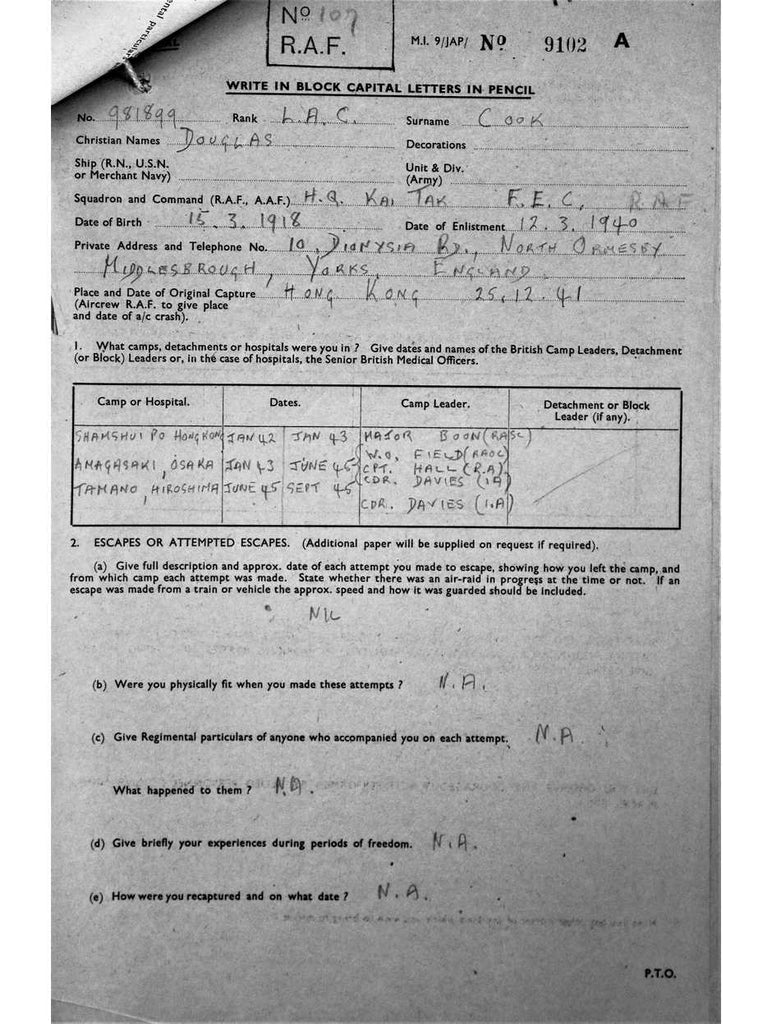 ental particular
Nº 107
R.A.F.
M.I. 9/JAP/ Nº 9102 A
WRITE IN BLOCK CAPITAL LETTERS IN PENCIL
No. 981899 Rank L.A.C. Surname COOK
Christian Names DOUGLAS Decorations
Ship (R.N., U.S.N.
or Merchant Navy)
Unit & Div.
(Army)
Squadron and Command (R.A.F., A.A.F.) H.Q. KAI TAK F.E.C, R.A.F
Date of Birth 15.3.1918 Date of Enlistment 12.3.1940
Private Address and Telephone No. 10, DIONYSIA RD., NORTH ORMESBY
MIDDLESBROUGH, YORKS, ENGLAND.
Place and Date of Original Capture HONG KONG 25.12.41
(Aircrew R.A.F. to give place
and date of a/c crash).
1. What camps, detachments or hospitals were you in ? Give dates and names of the British Camp Leaders, Detachment
(or Block) Leaders or, in the case of hospitals, the Senior British Medical Officers.
Camp or Hospital. Dates. Camp Leader. Detachment or Block
Leader (if any).
SHAMSHUI PO HONGKONG JAN 42 JAN 43 MAJOR BOON (RASC)
W.O. FIELD (RAOC)
AMAGASAKI, OSAKA JAN 43 JUNE 45 CPT. HALL (R.A)
CDR. DAVIES (I.A)
TAMANO, HIROSHIMA JUNE 45 SEPT 45
CDR. DAVIES (I.A)
2. ESCAPES OR ATTEMPTED ESCAPES. (Additional paper will be supplied on request if required).
(a) Give full description and approx. date of each attempt you made to escape, showing how you left the camp, and
from which camp each attempt was made. State whether there was an air-raid in progress at the time or not. If an
escape was made from a train or vehicle the approx. speed and how it was guarded should be included.
NIL
(b) Were you physically fit when you made these attempts ? N.A.
(c) Give Regimental particulars of anyone who accompanied you on each attempt. N.A.
What happened to them ? N.A.
(d) Give briefly your experiences during periods of freedom. N.A.
(e) How were you recaptured and on what date ? N.A.
P.T.O.